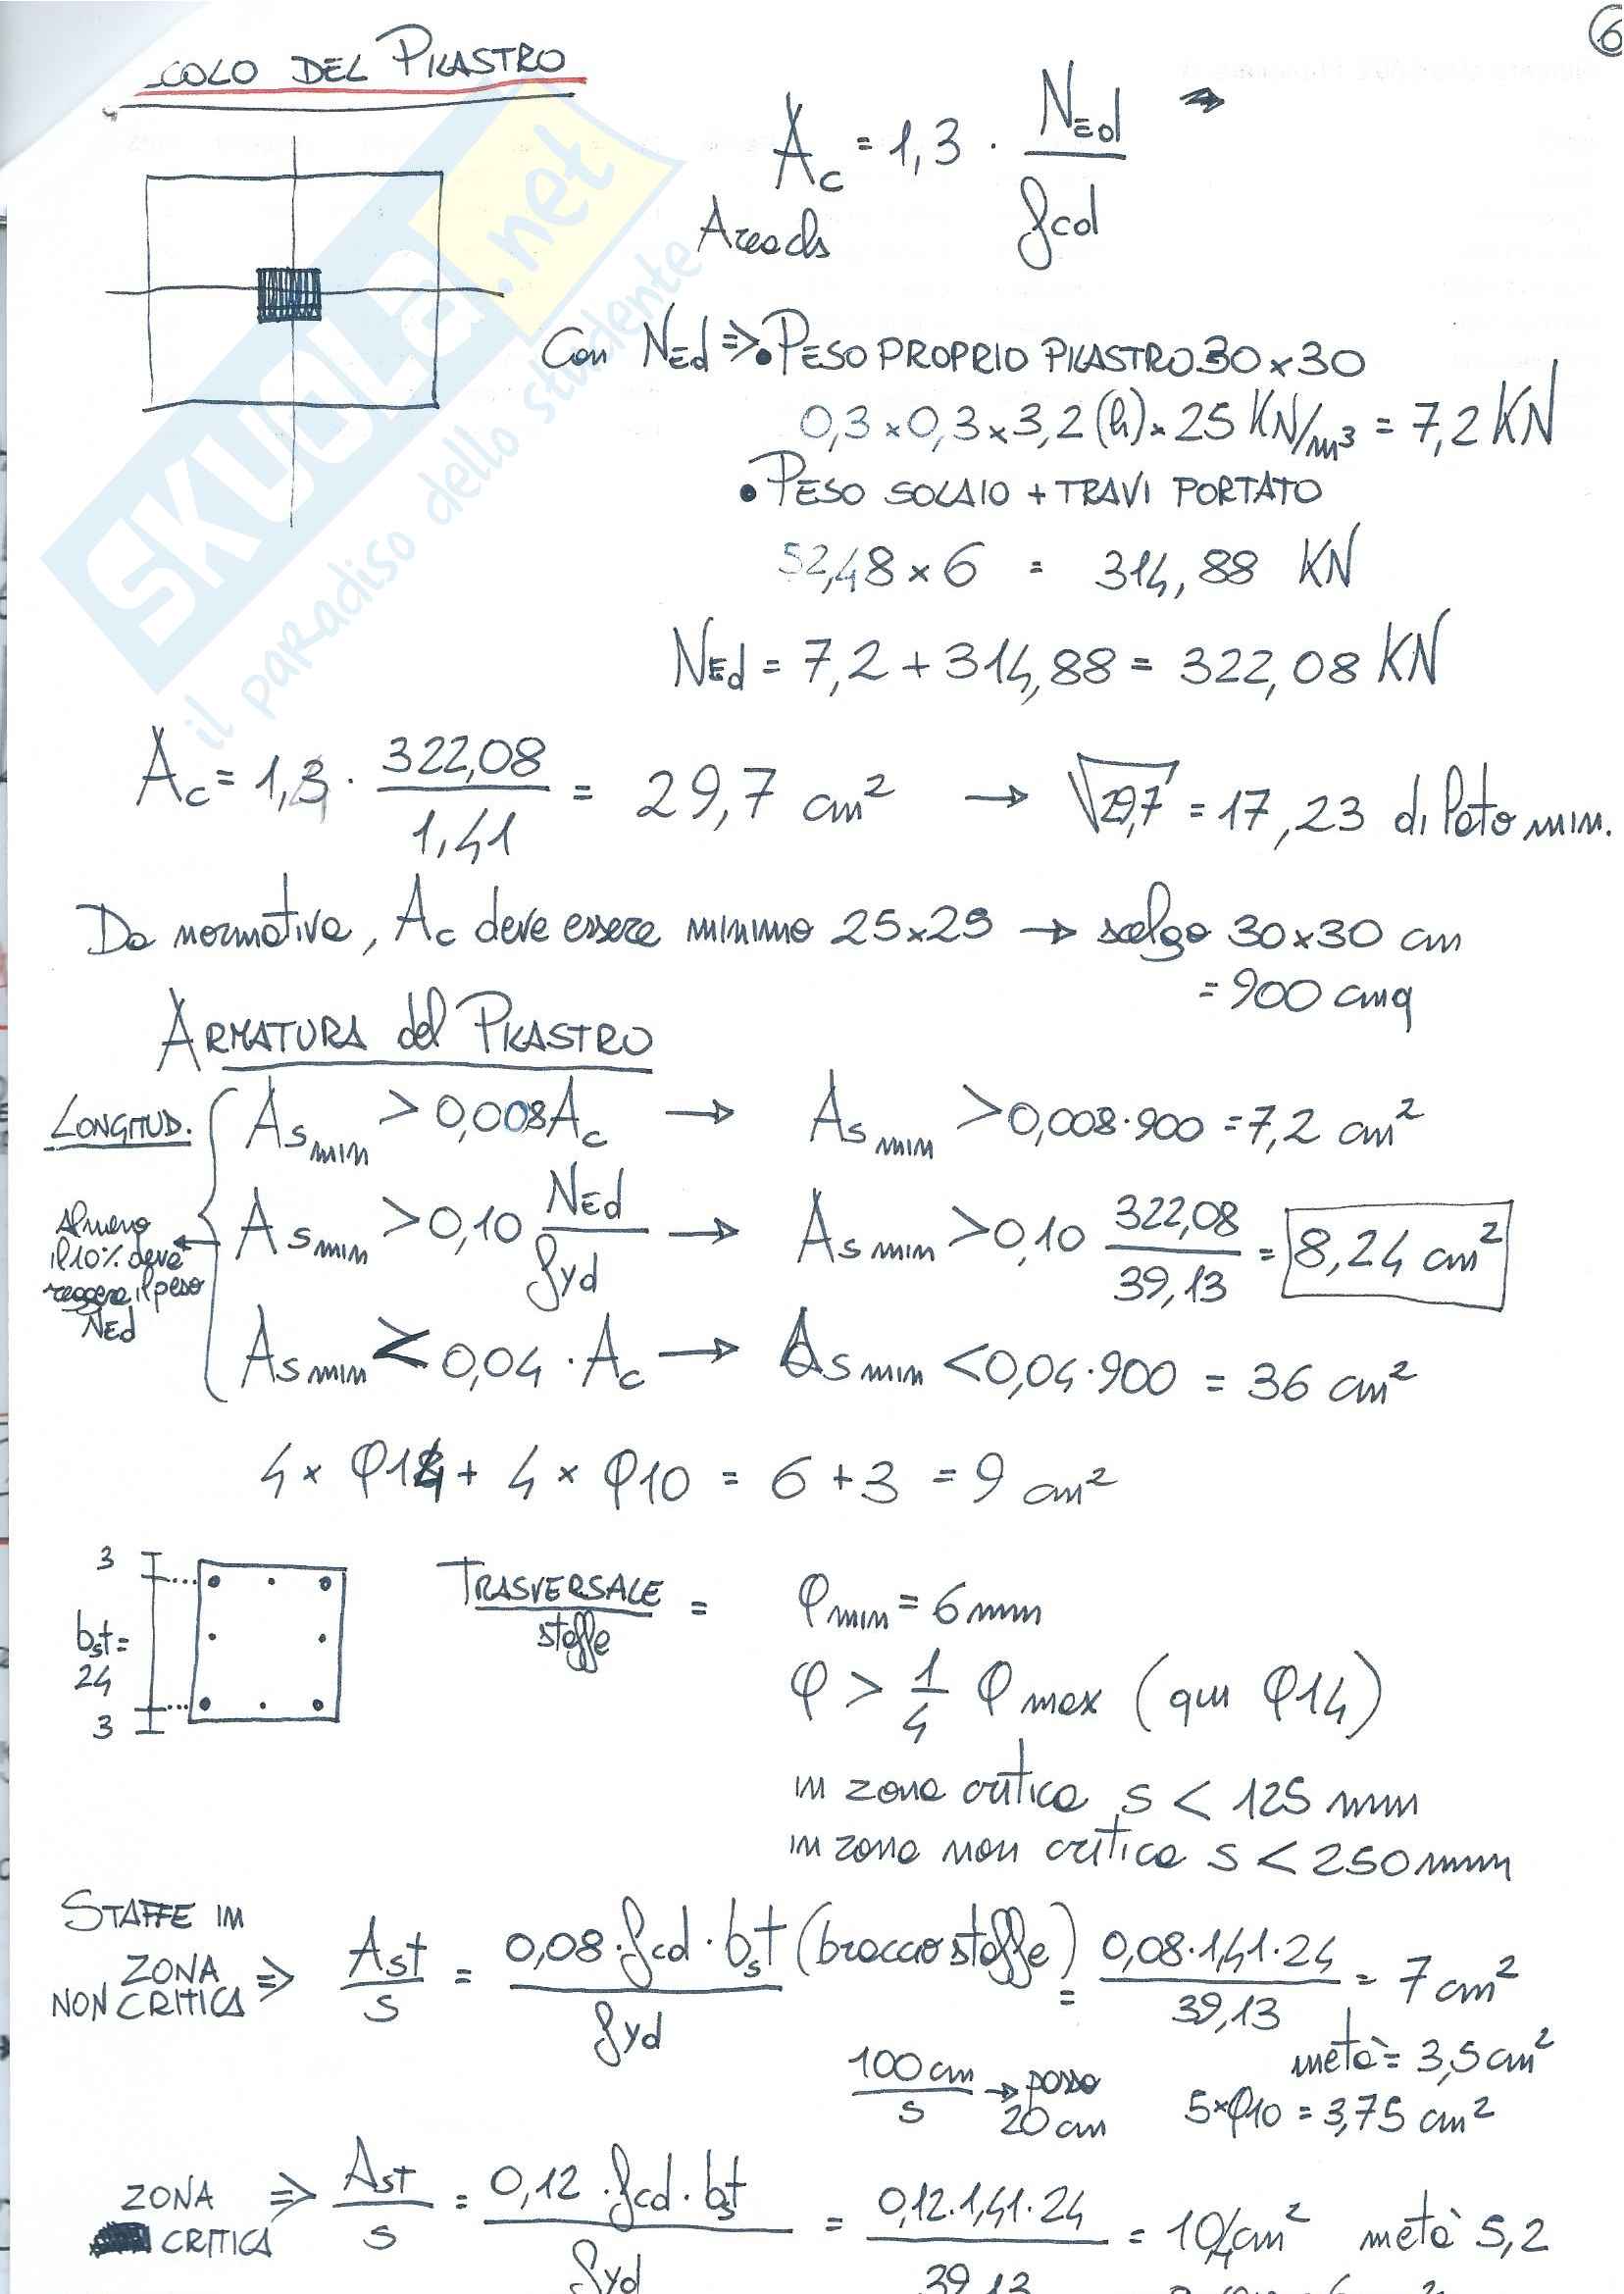 6
COLO DEL PILASTRO
Ac = 1,3 · NEd / fcd
Con NEd ⇒ • PESO PROPRIO PILASTRO 30x30
0,3 x 0,3 x 3,2 (h) x 25 KN/m³ = 7,2 KN
• PESO SOLAIO + TRAVI PORTATO
52,48 x 6 = 314,88 KN
NEd = 7,2 + 314,88 = 322,08 KN
Ac = 1,3 · 322,08 / 1,41 = 29,7 cm² → √29,7 = 17,23 di lato min.
Da normativa, Ac deve essere minimo 25x25 → scelgo 30x30 cm
= 900 cmq
ARMATURA del PILASTRO
LONGITUD. As min > 0,008 Ac → As min > 0,008·900 = 7,2 cm²
Almeno il 10% deve reggere il peso NEd
As min > 0,10 NEd / fyd → As min > 0,10 322,08 / 39,13 = 8,24 cm²
As min < 0,04 · Ac → As min < 0,04·900 = 36 cm²
4 x φ14 + 4 x φ10 = 6 + 3 = 9 cm²
3
bst = 24
3
TRASVERSALE = φmin = 6mm
staffe
φ > 1/4 φ max (qui φ14)
in zona critica s < 125 mm
in zona non critica s < 250 mm
STAFFE IN ZONA NON CRITICA ⇒ Ast / s = 0,08·fcd·bst (braccio staffe) / fyd = 0,08·1,41·24 / 39,13 = 7 cm²
metà = 3,5 cm²
100 cm / s → passo 20 cm
5xφ10 = 3,75 cm²
ZONA CRITICA ⇒ Ast / s = 0,12·fcd·bst / fyd = 0,12·1,41·24 / 39,13 = 10,4 cm² metà 5,2
SKUOLA.net
il paradiso dello studente